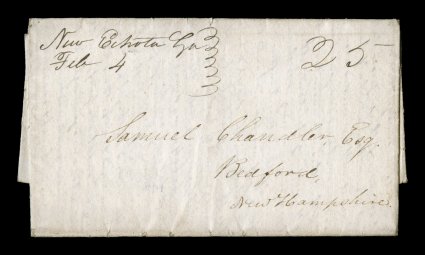 New Echota Ga
Feb 4
25
Samuel Chandler, Esq.
Bedford,
New Hampshire.